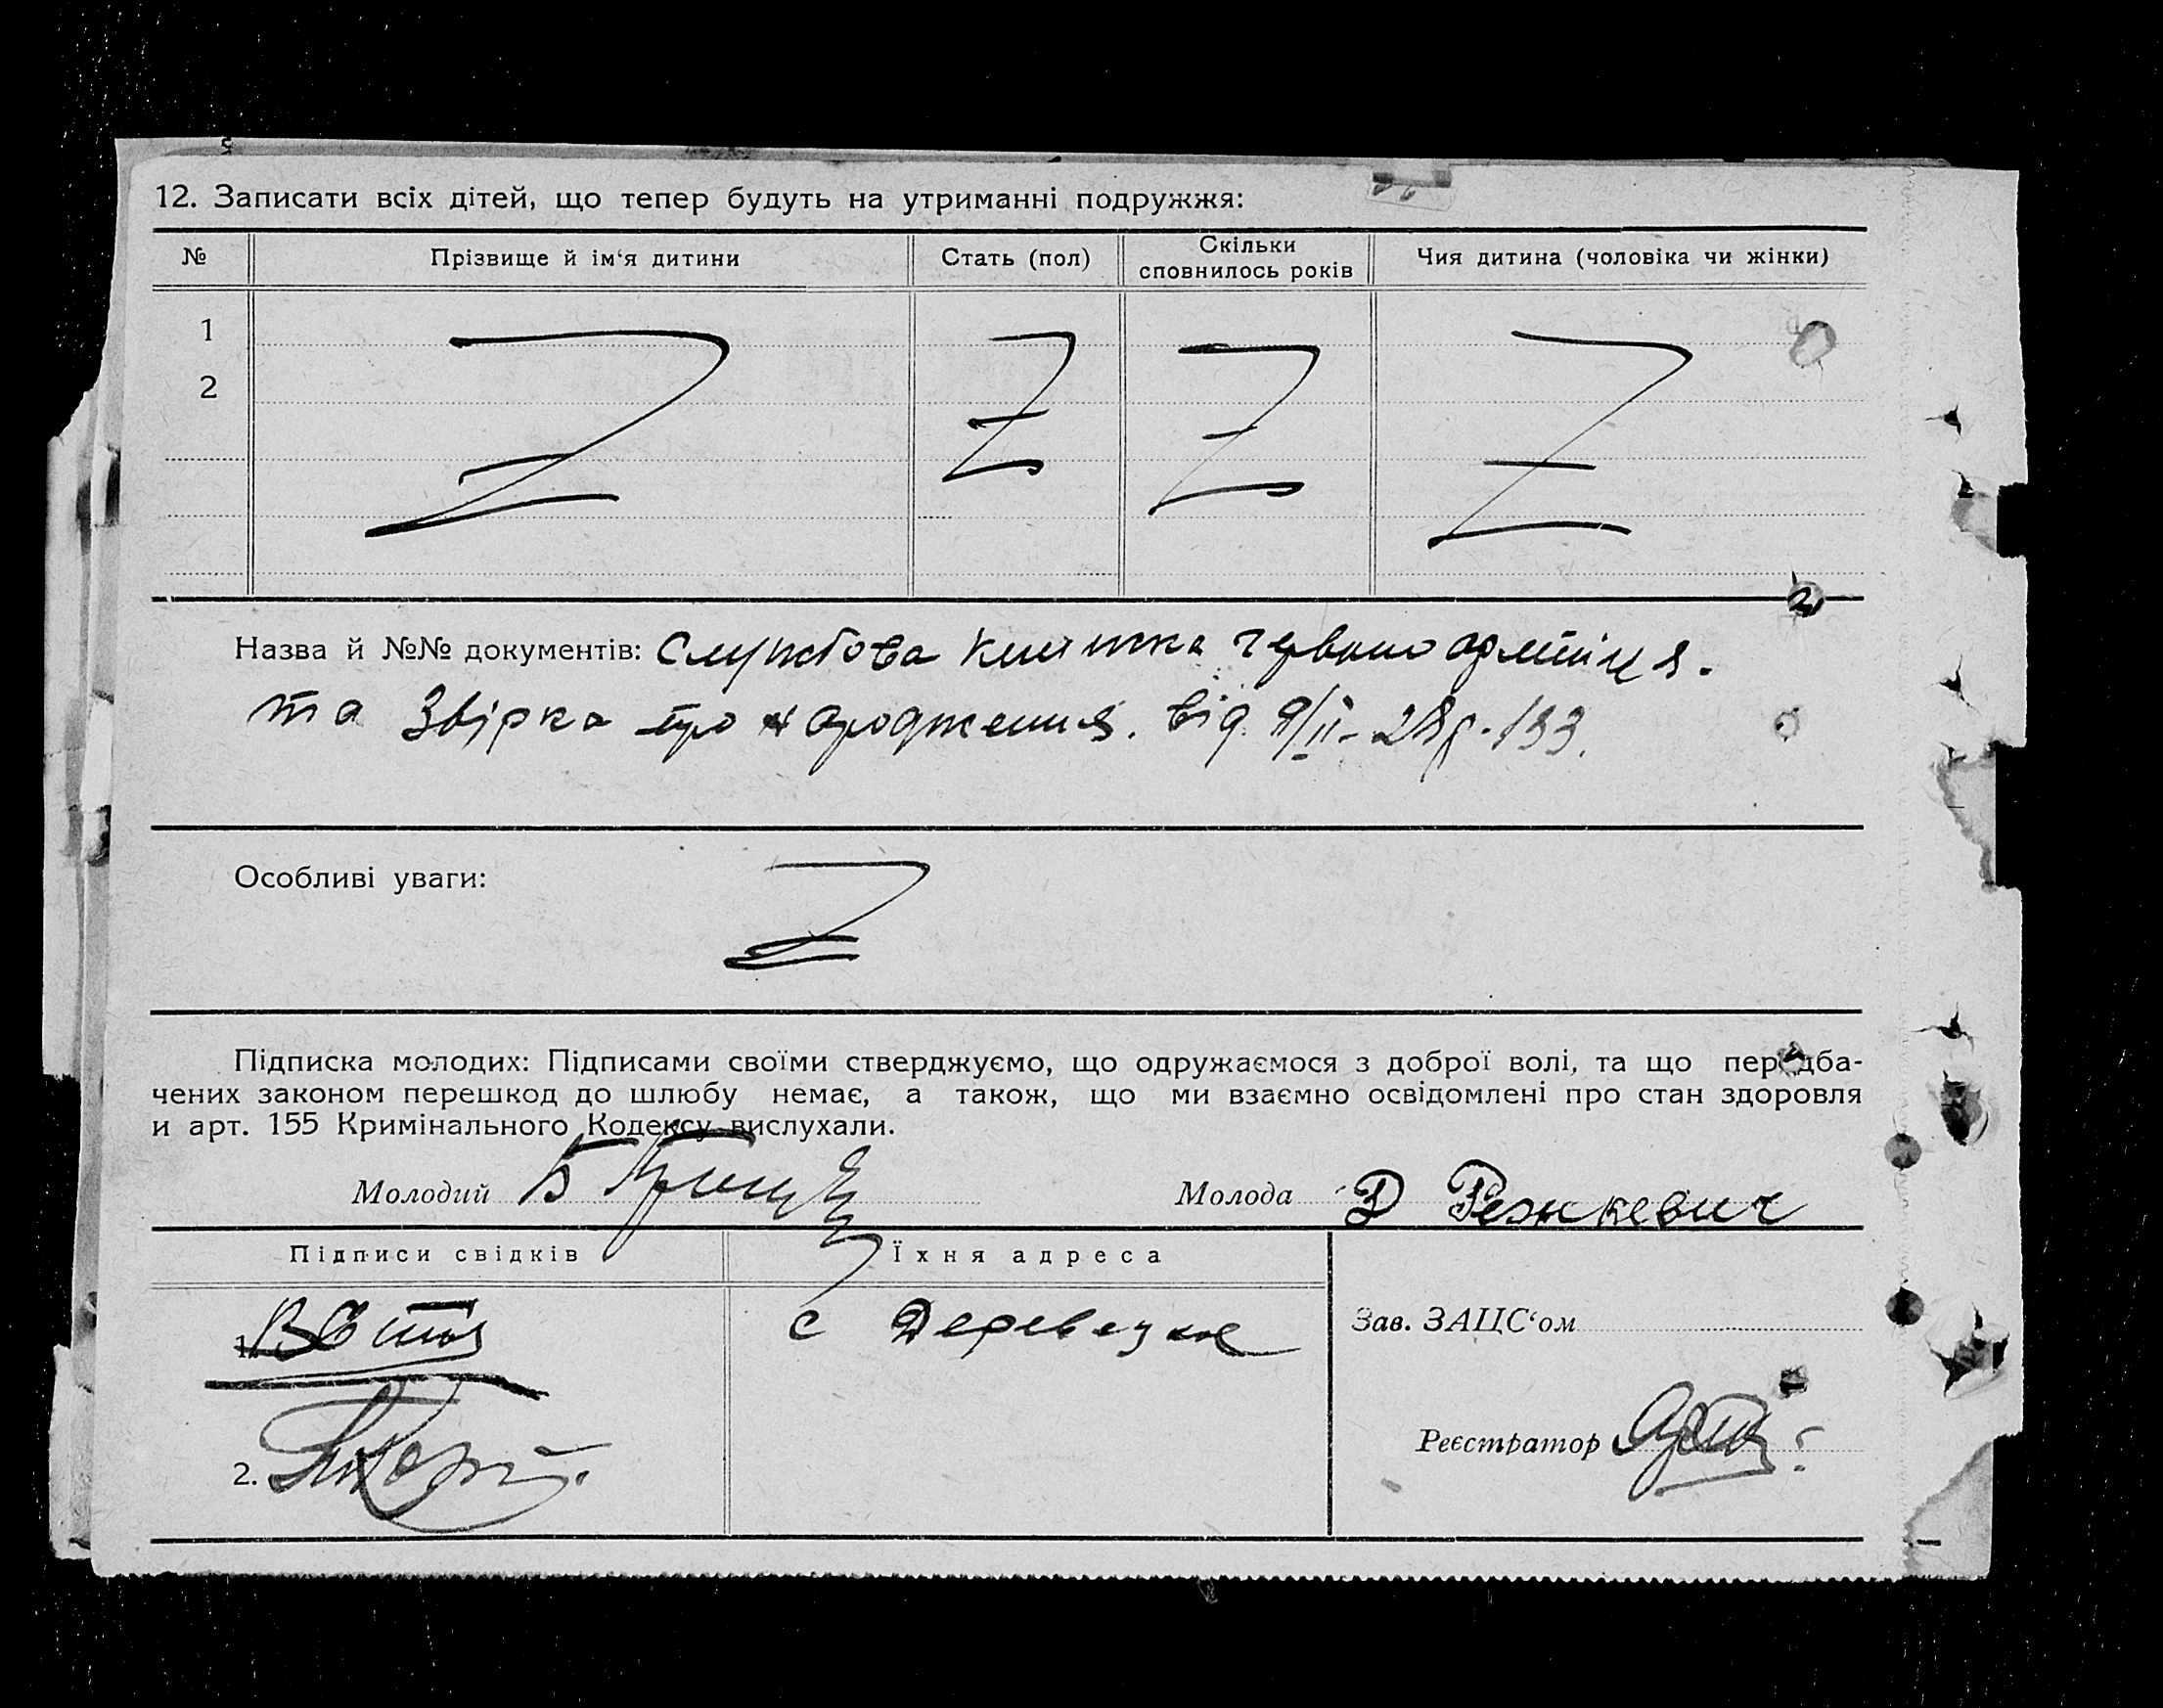 12. Записати всіх дітей, що тепер будуть на утриманні подружжя:
№ Прізвище й ім‘я дитини Стать (пол) Скільки сповнилось років Чия дитина (чоловіка чи жінки)
1
2
Назва й №№ документів: Службова книжка червоноармійця.
та Звірка про народження. від 9/ІІ-28р. 133.
Особливі уваги:
Підписка молодих: Підписами своїми стверджуємо, що одружаємося з доброї волі, та що передба-
чених законом перешкод до шлюбу немає, а також, що ми взаємно освідомлені про стан здоровля
и арт. 155 Кримінального Кодексу вислухали.
Молодий Б Молода Резнкевич
Підписи свідків Їхня адреса
1. с Деревецке Зав. ЗАЦС‘ом
2. Реєстратор